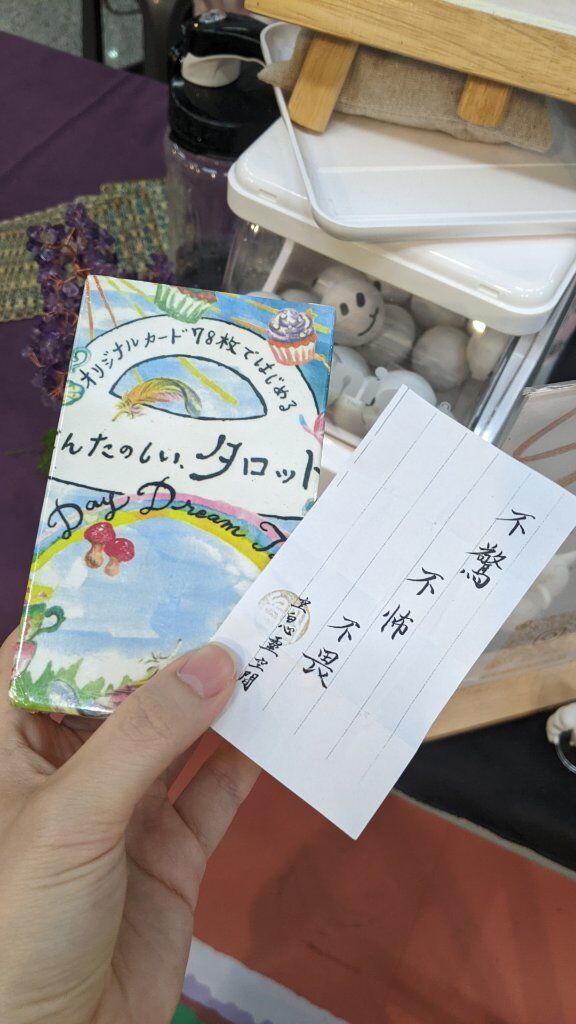 オリジナルカード78枚ではじめる
んたのしい、タロット
Day Dream
不驚
不怖
不畏
空間